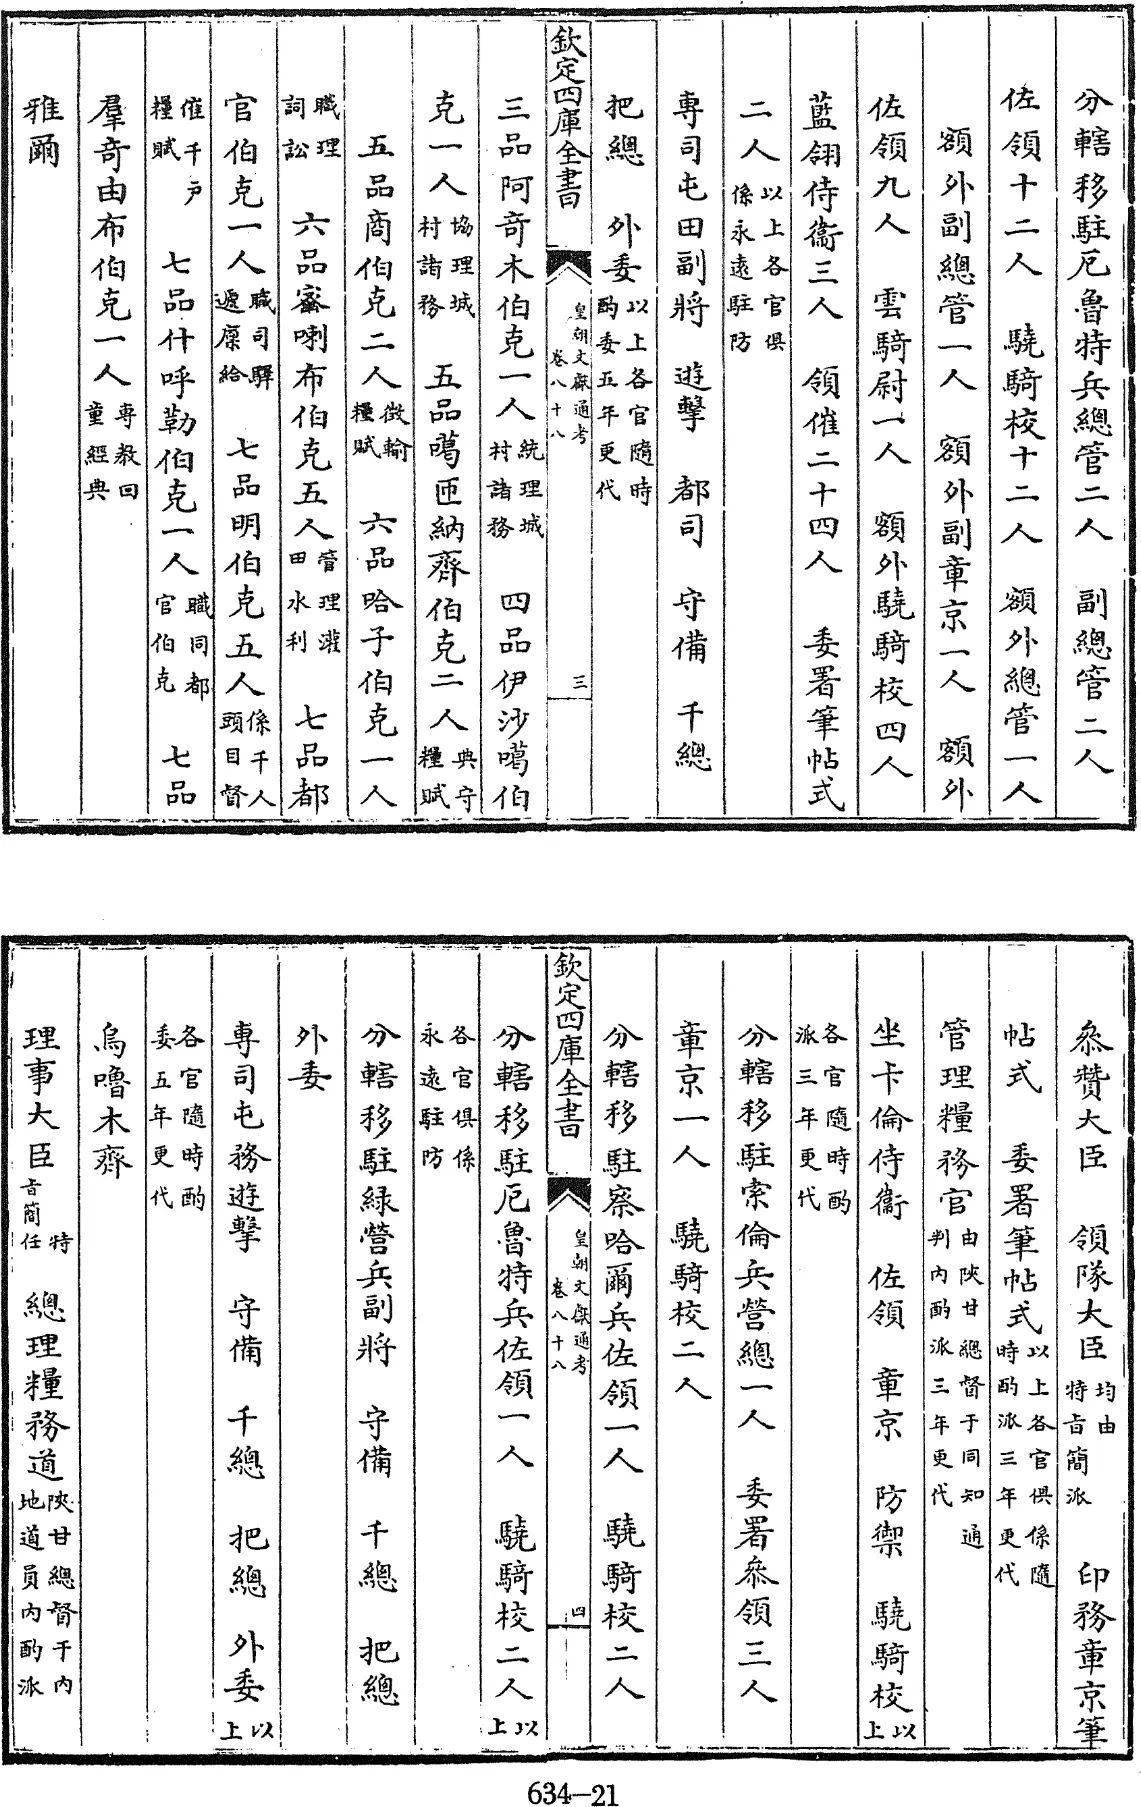 分轄移駐厄魯特兵總管二人 副總管二人
佐領十二人 驍騎校十二人 額外總管一人
額外副總管一人 額外副章京一人 額外
佐領九人 雲騎尉一人 額外驍騎校四人
藍翎侍衞三人 領催二十四人 委署筆帖式
二人以上各官俱係永遠駐防
專司屯田副將 遊擊 都司 守備 千總
把總 外委以上各官隨時酌委五年更代
欽定四庫全書 皇朝文獻通考 卷八十八 三
三品阿奇木伯克一人統理城村諸務 四品伊沙噶伯
克一人協理城村諸務 五品噶匝納齊伯克二人典守糧賦
五品商伯克二人徵輸糧賦 六品哈子伯克一人
職理詞訟 六品蜜喇布伯克五人管理灌田水利 七品都
官伯克一人職司驛遞廩給 七品明伯克五人係千人頭目督
催千戶糧賦 七品什呼勒伯克一人職同都官伯克 七品
羣奇由布伯克一人專教回童經典
雅爾
叅贊大臣 領隊大臣均由特旨簡派 印務章京筆
帖式 委署筆帖式以上各官俱係隨時酌派三年更代
管理糧務官由陜甘總督于同知通判內酌派三年更代
坐卡倫侍衞 佐領 章京 防禦 驍騎校以上
各官隨時酌派三年更代
分轄移駐索倫兵營總一人 委署叅領三人
章京一人 驍騎校二人
分轄移駐察哈爾兵佐領一人 驍騎校二人
欽定四庫全書 皇朝文獻通考 卷八十八 四
分轄移駐厄魯特兵佐領一人 驍騎校二人以上
各官俱係永遠駐防
分轄移駐綠營兵副將 守備 千總 把總
外委
專司屯務遊擊 守備 千總 把總 外委以上
各官隨時酌委五年更代
烏嚕木齊
理事大臣特旨簡任 總理糧務道陜甘總督于內地道員內酌派
634-21